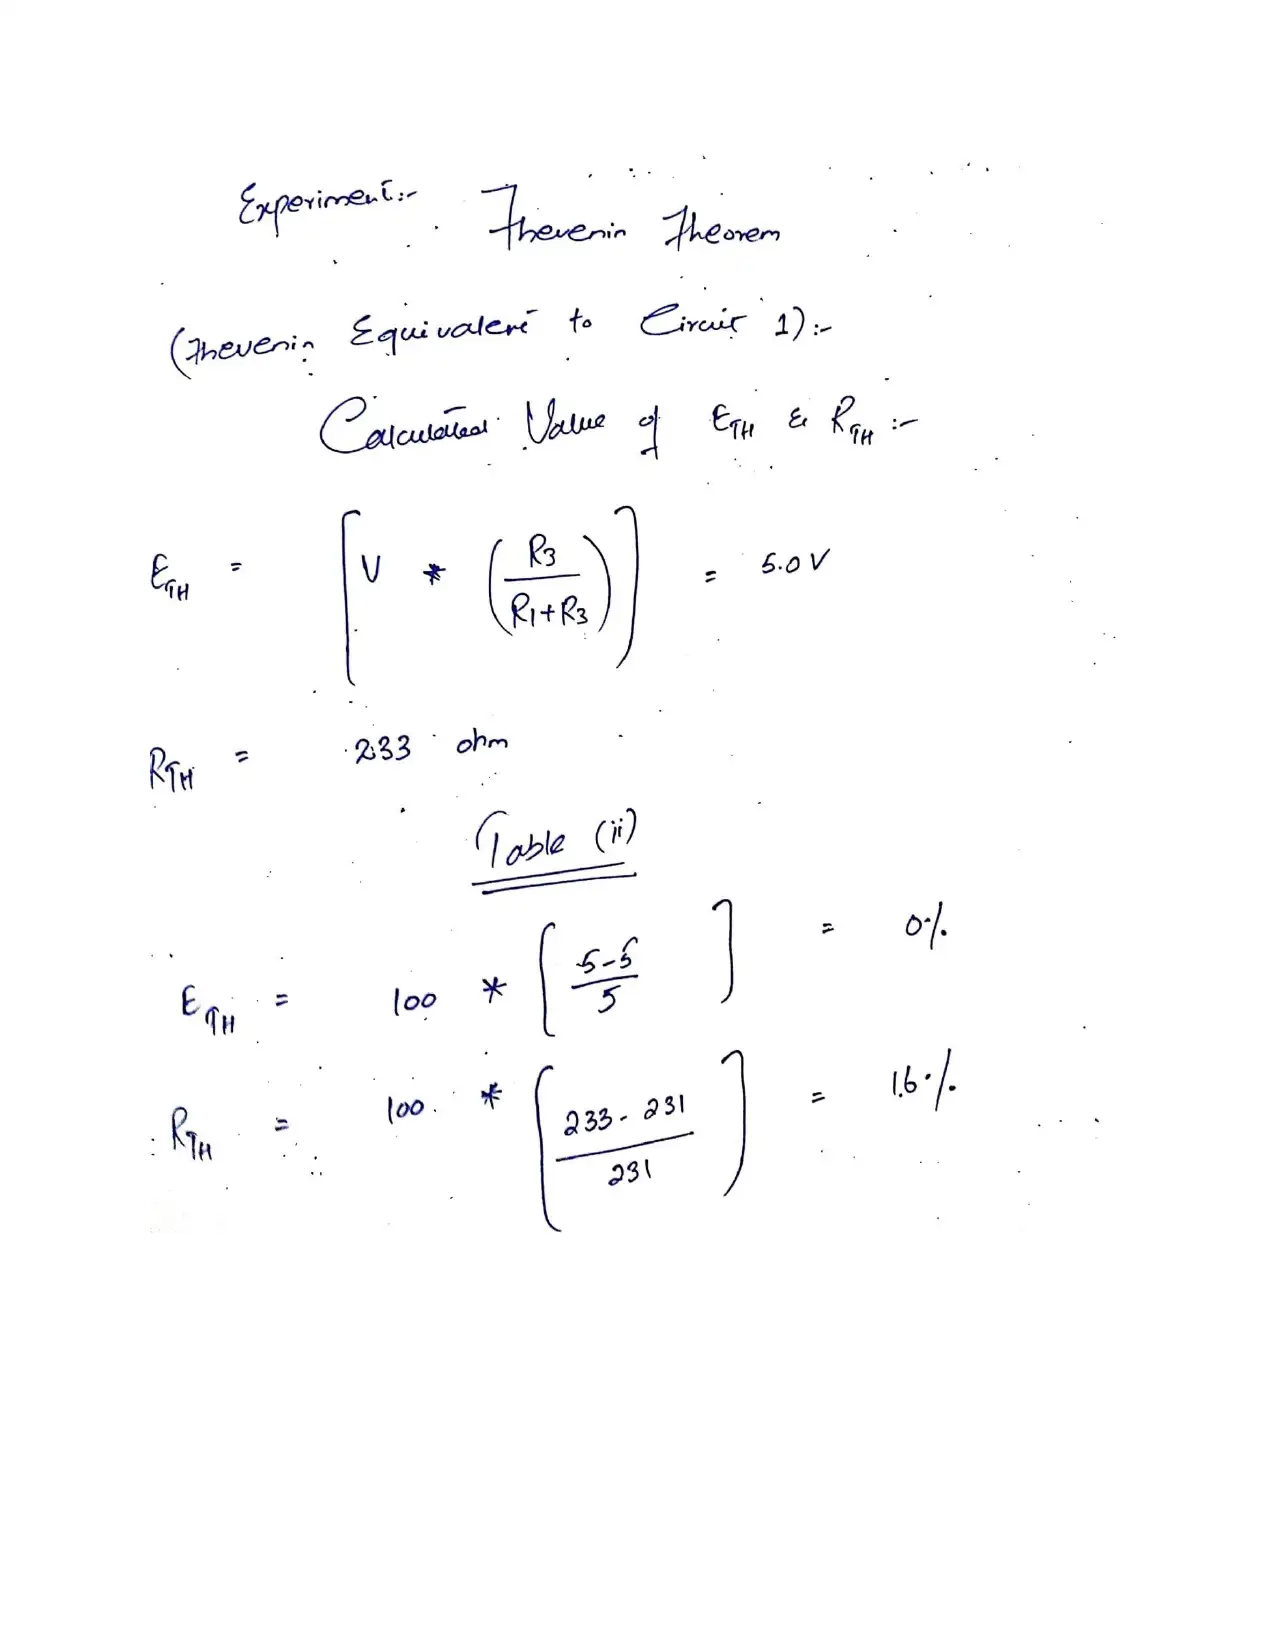 Experiment:- Thevenin Theorem
(Thevenin Equivalent to Circuit 1):-
Calculated Value of ETH & RTH :-
ETH = [V * (R3 / R1+R3)] = 5.0 V
RTH = 233 ohm
Table (ii)
ETH = 100 * [5-5 / 5] = 0%
RTH = 100 * [233-231 / 231] = 1.6%